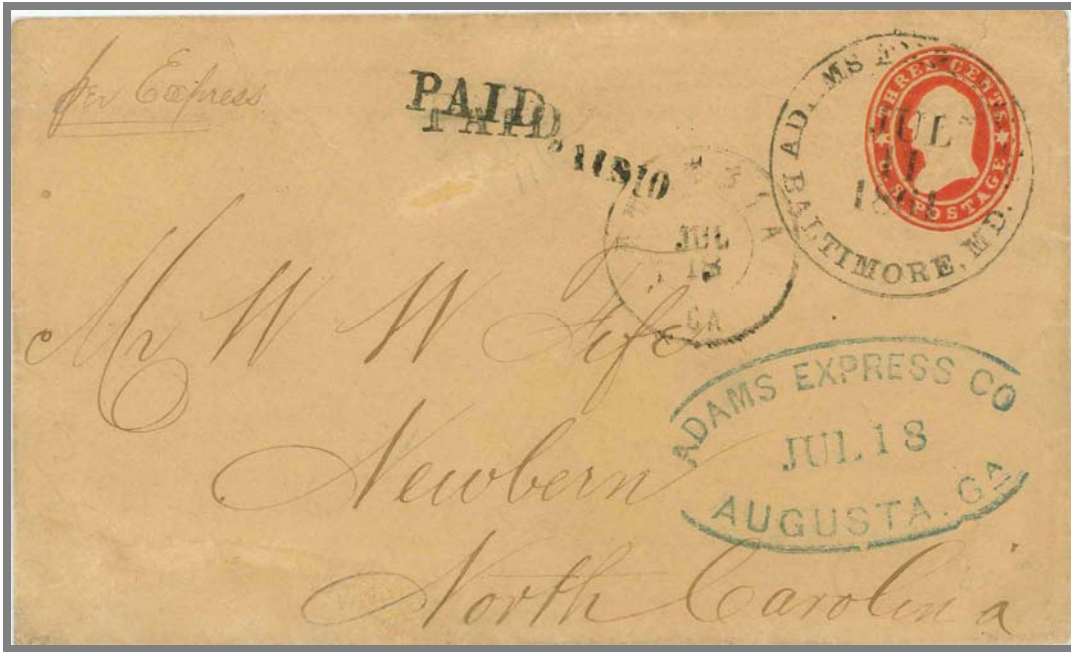 per Express
PAID
PAID
10
ADAMS
JUL
11
BALTIMORE, MD.
THREE CENTS
U.S. POSTAGE
JUL
18
GA
Mr W W Fife
Newbern
North Carolina
ADAMS EXPRESS CO
JUL 18
AUGUSTA. GA